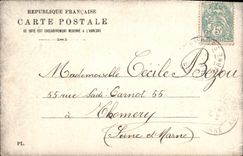 RÉPUBLIQUE FRANÇAISE
CARTE POSTALE
CE CÔTÉ EST EXCLUSIVEMENT RÉSERVÉ A L'ADRESSE
Mademoiselle Cécile
55 rue Sadi Carnot 55
à Thomery
(Seine et Marne)
PL.